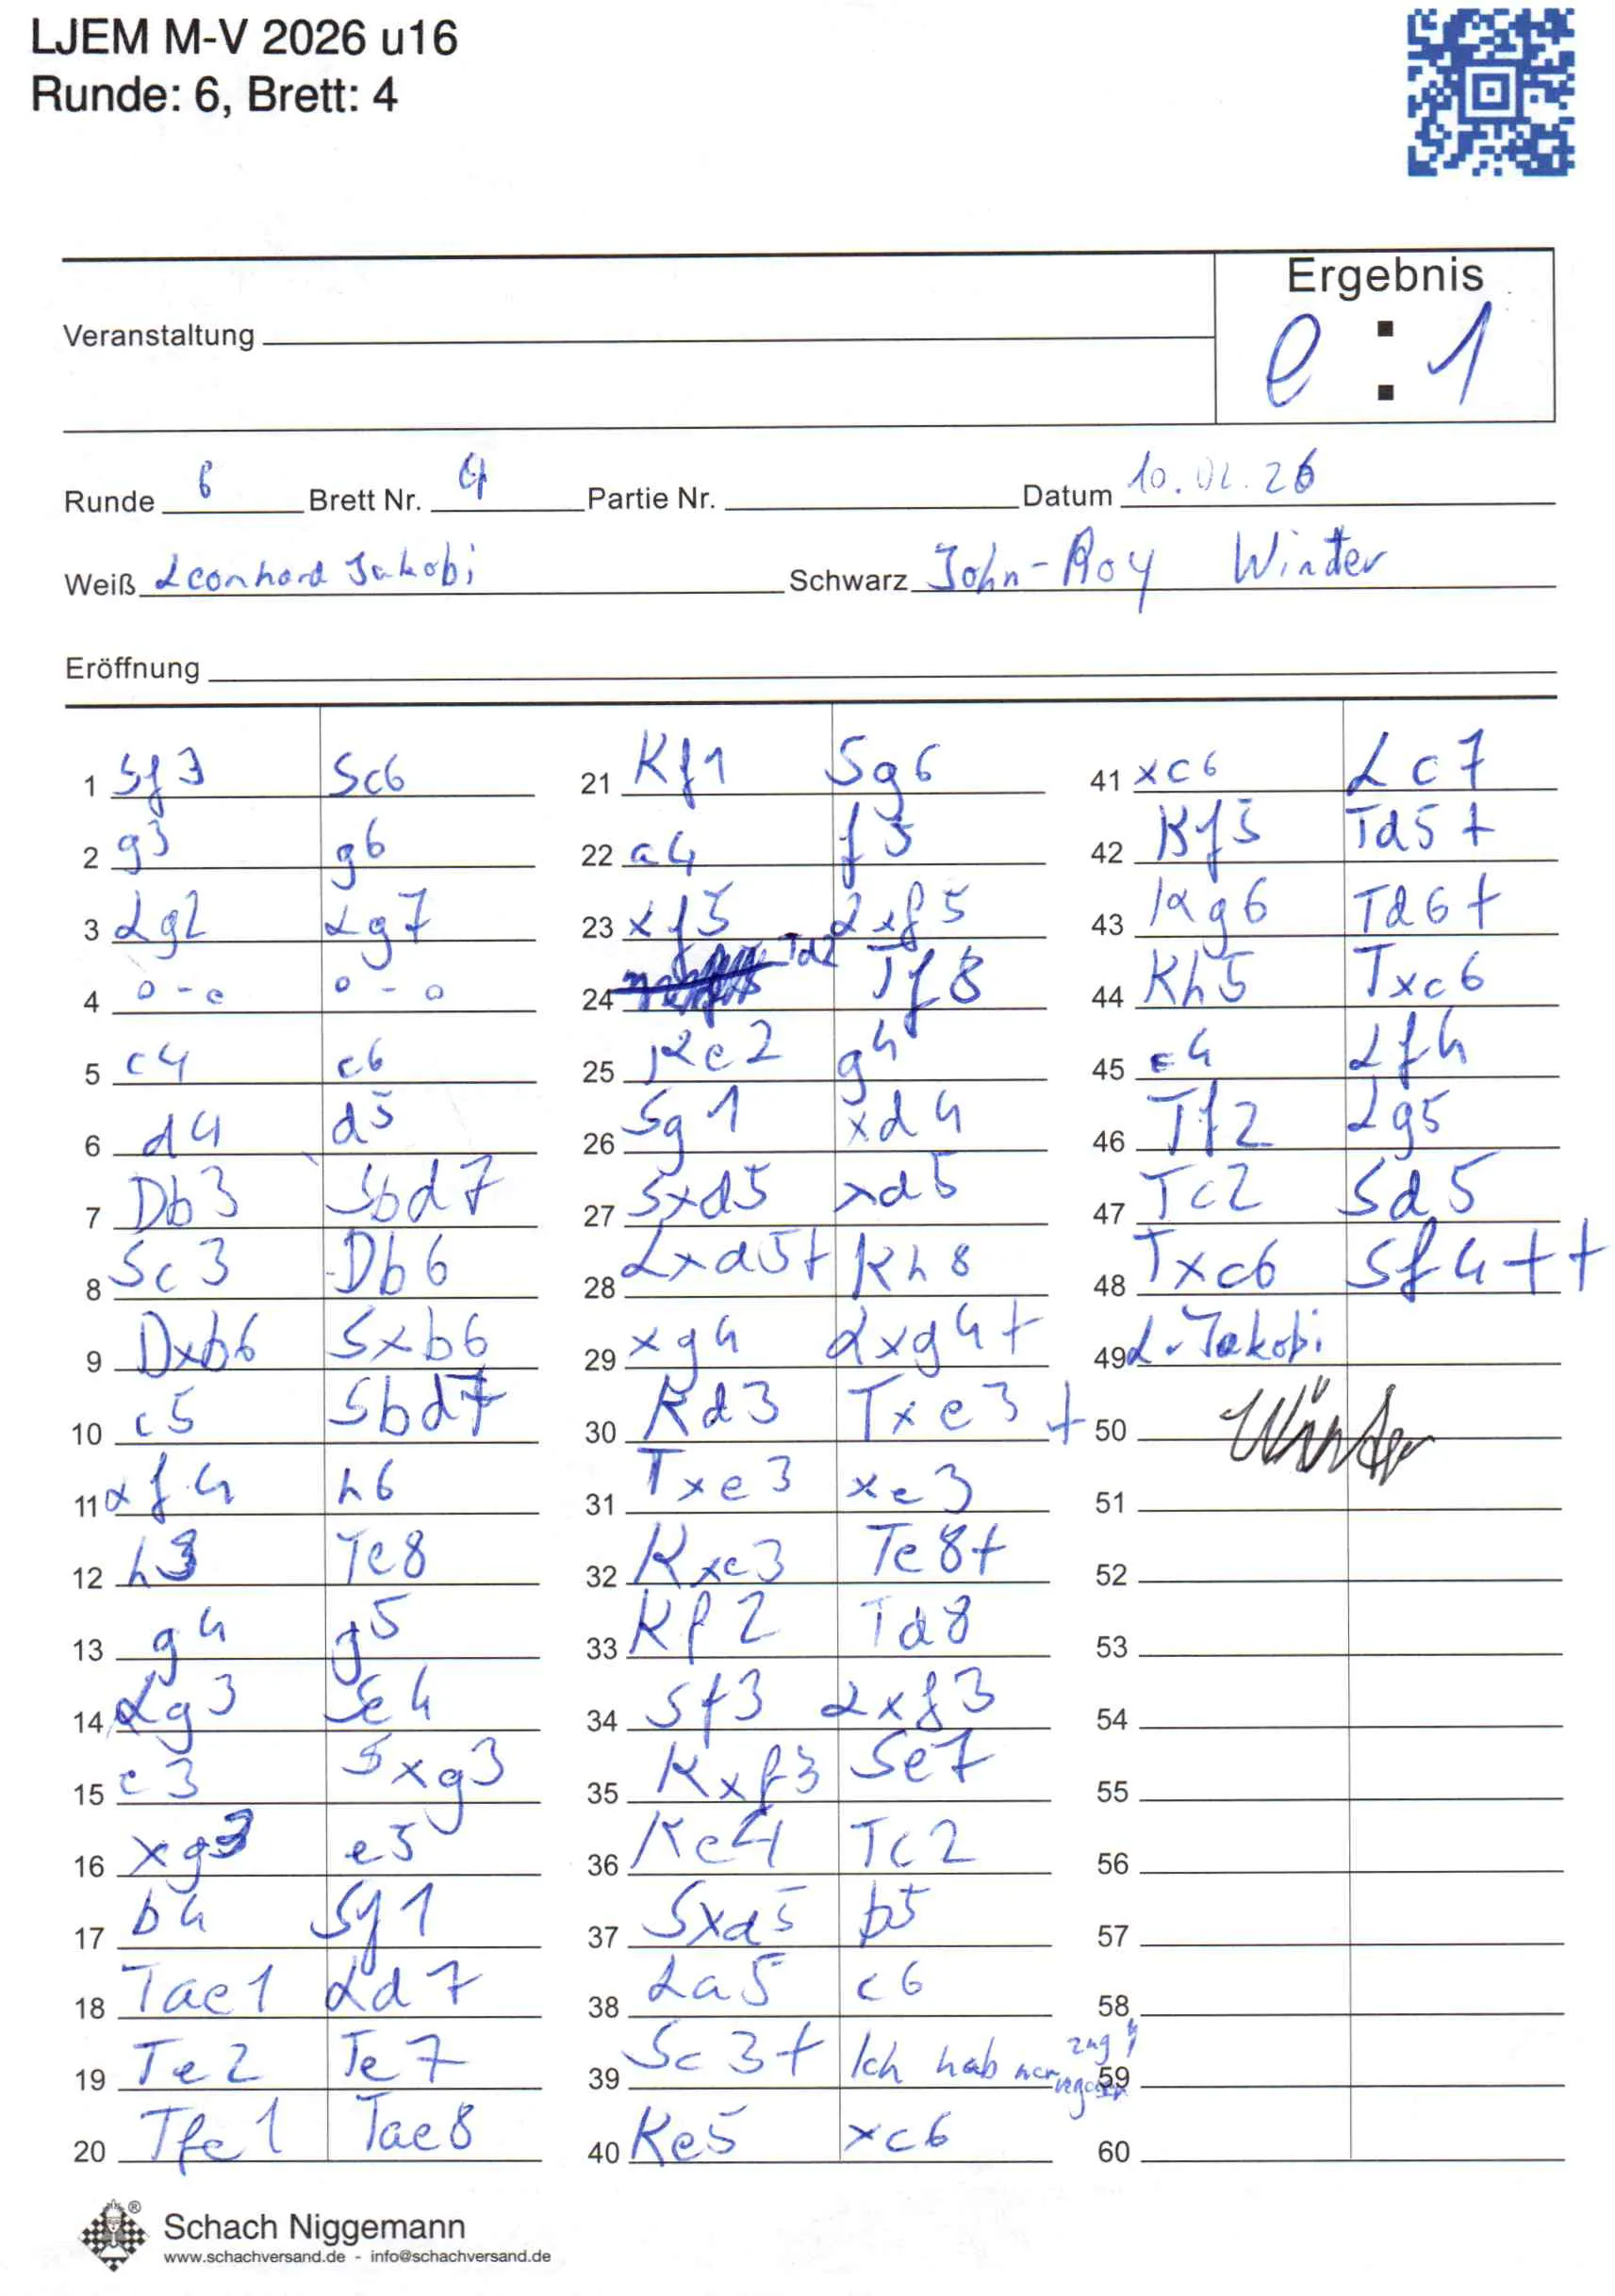 LJEM M-V 2026 u16
Runde: 6, Brett: 4
Ergebnis
0 : 1
Veranstaltung
Runde 6 Brett Nr. 4 Partie Nr. Datum 10.02.26
Weiß Leonhard Jakobi Schwarz John-Roy Winter
Eröffnung
1 Sf3 Sc6
2 g3 g6
3 Lg2 Lg7
4 0-0 0-0
5 c4 c6
6 d4 d5
7 Db3 Sbd7
8 Sc3 Db6
9 Dxb6 Sxb6
10 c5 Sbd7
11 Lf4 h6
12 h3 Te8
13 g4 g5
14 Lg3 Se4
15 e3 Sxg3
16 xg3 e5
17 b4 Sf1
18 Tae1 Ld7
19 Te2 Te7
20 Tfe1 Tae8
21 Kf1 Sg6
22 a4 f5
23 xf5 Lxf5
24 Td2 Tf8
25 Ke2 g4
26 Sg1 xd4
27 Sxd5 xd5
28 Lxd5+ Kh8
29 xg4 Lxg4+
30 Kd3 Txe3+
31 Txe3 xe3
32 Kxe3 Te8+
33 Kf2 Td8
34 Sf3 Lxf3
35 Kxf3 Se7
36 Ke4 Tc2
37 Sxd5 b5
38 La5 c6
39 Sc3+ Ich hab zug
40 Ke5 xc6
41 xc6 Lc7
42 Kf5 Td5+
43 Kg6 Td6+
44 Kh5 Txc6
45 e4 Lf4
46 Tf2 Lg5
47 Tc2 Sd5
48 Txc6 Sf4++
49 L. Jakobi
50 Winter
51
52
53
54
55
56
57
58
59
60
Schach Niggemann
www.schachversand.de - info@schachversand.de